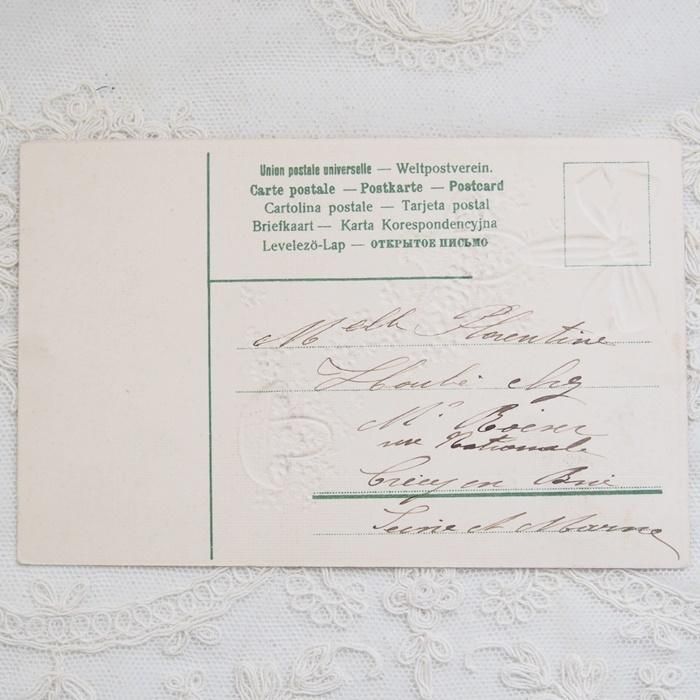 Union postale universelle — Weltpostverein.
Carte postale — Postkarte — Postcard
Cartolina postale — Tarjeta postal
Briefkaart — Karta Korespondencyjna
Levelező-Lap — ОТКРЫТОЕ ПИСЬМО
Melle Florentine
chez
Mr
rue Nationale
Crécy en Brie
Seine et Marne